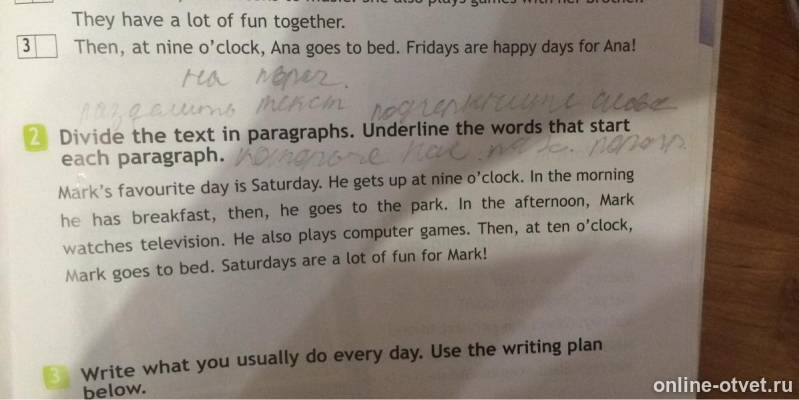 They have a lot of fun together.
3 Then, at nine o'clock, Ana goes to bed. Fridays are happy days for Ana!
на
текст
2 Divide the text in paragraphs. Underline the words that start
each paragraph.
Mark's favourite day is Saturday. He gets up at nine o'clock. In the morning
he has breakfast, then, he goes to the park. In the afternoon, Mark
watches television. He also plays computer games. Then, at ten o'clock,
Mark goes to bed. Saturdays are a lot of fun for Mark!
3 Write what you usually do every day. Use the writing plan
below.
online-otvet.ru